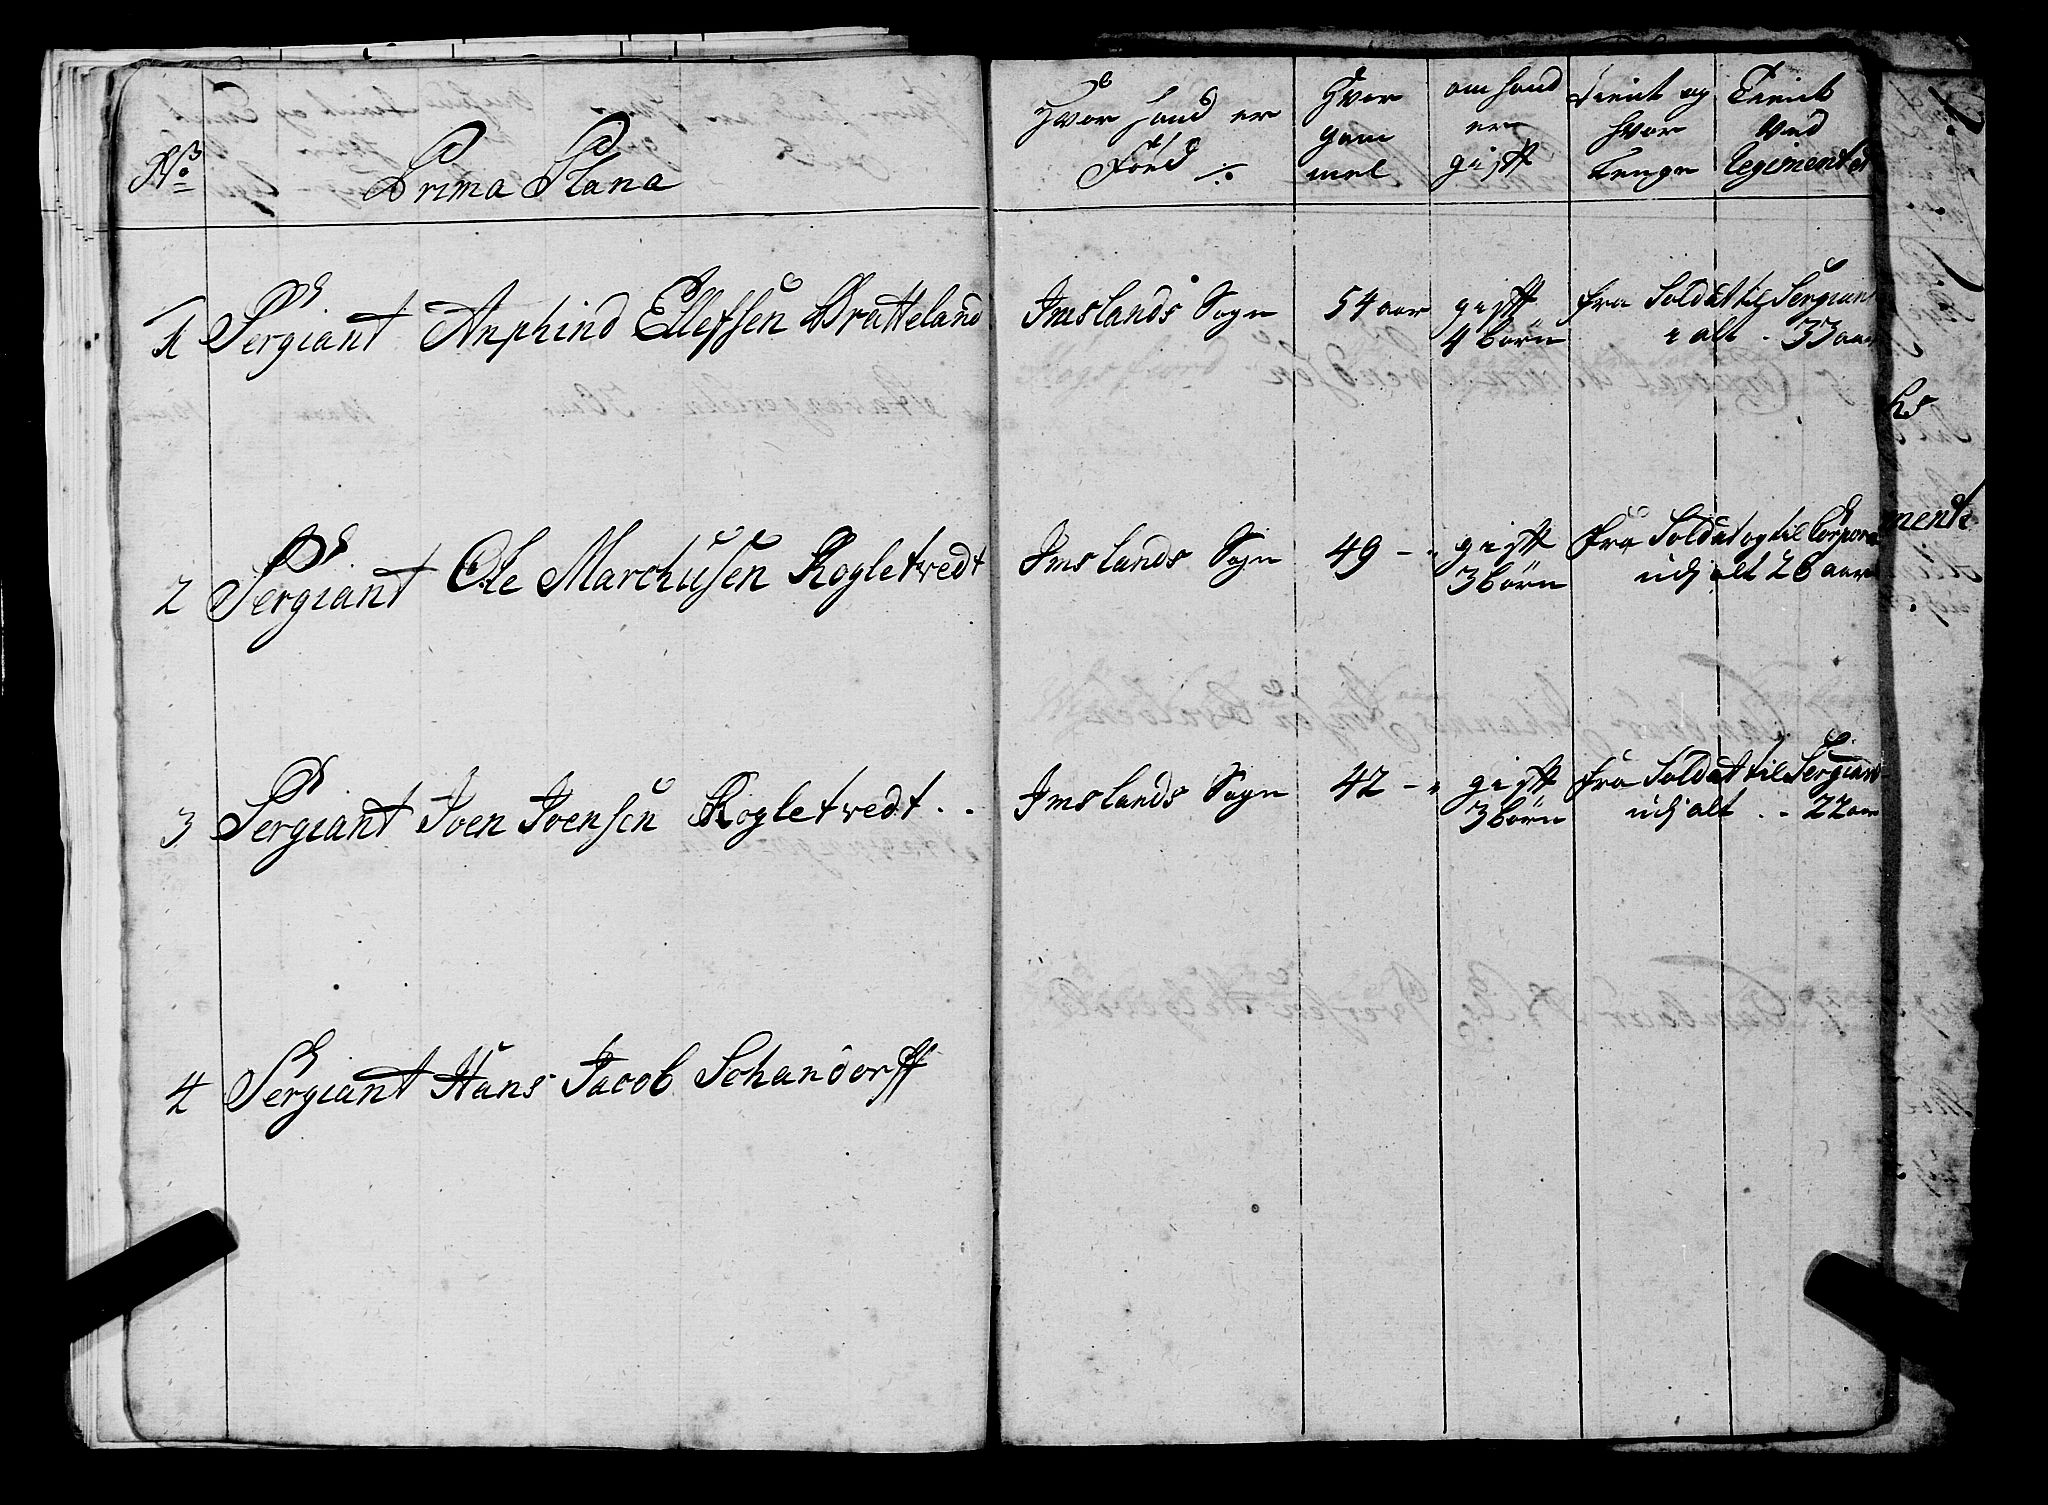 No Prima Plana
Hvor hand er Föed
Hvor gam mel
om hand er gift
Tient og hvor Lenge
Tient Ved Regimentet
1 Sergiant Anphind Ellefsen Bratteland Imslands Sogn 54 aar gift fra Soldat til Sergiant
4 börn i alt . 33 aar
2 Sergiant Ole Marchusen Kogletvedt Imslands Sogn 49 - " gift fra Soldat og til Corpora
3 börn udj alt 26 aar
3 Sergiant Iven Ivensen Kogletvedt . . Imslands Sogn 42 - " gift fra Soldat til Sergiant
3 börn udj alt . . 22 aar
4 Sergiant Hans Jacob Schandorff